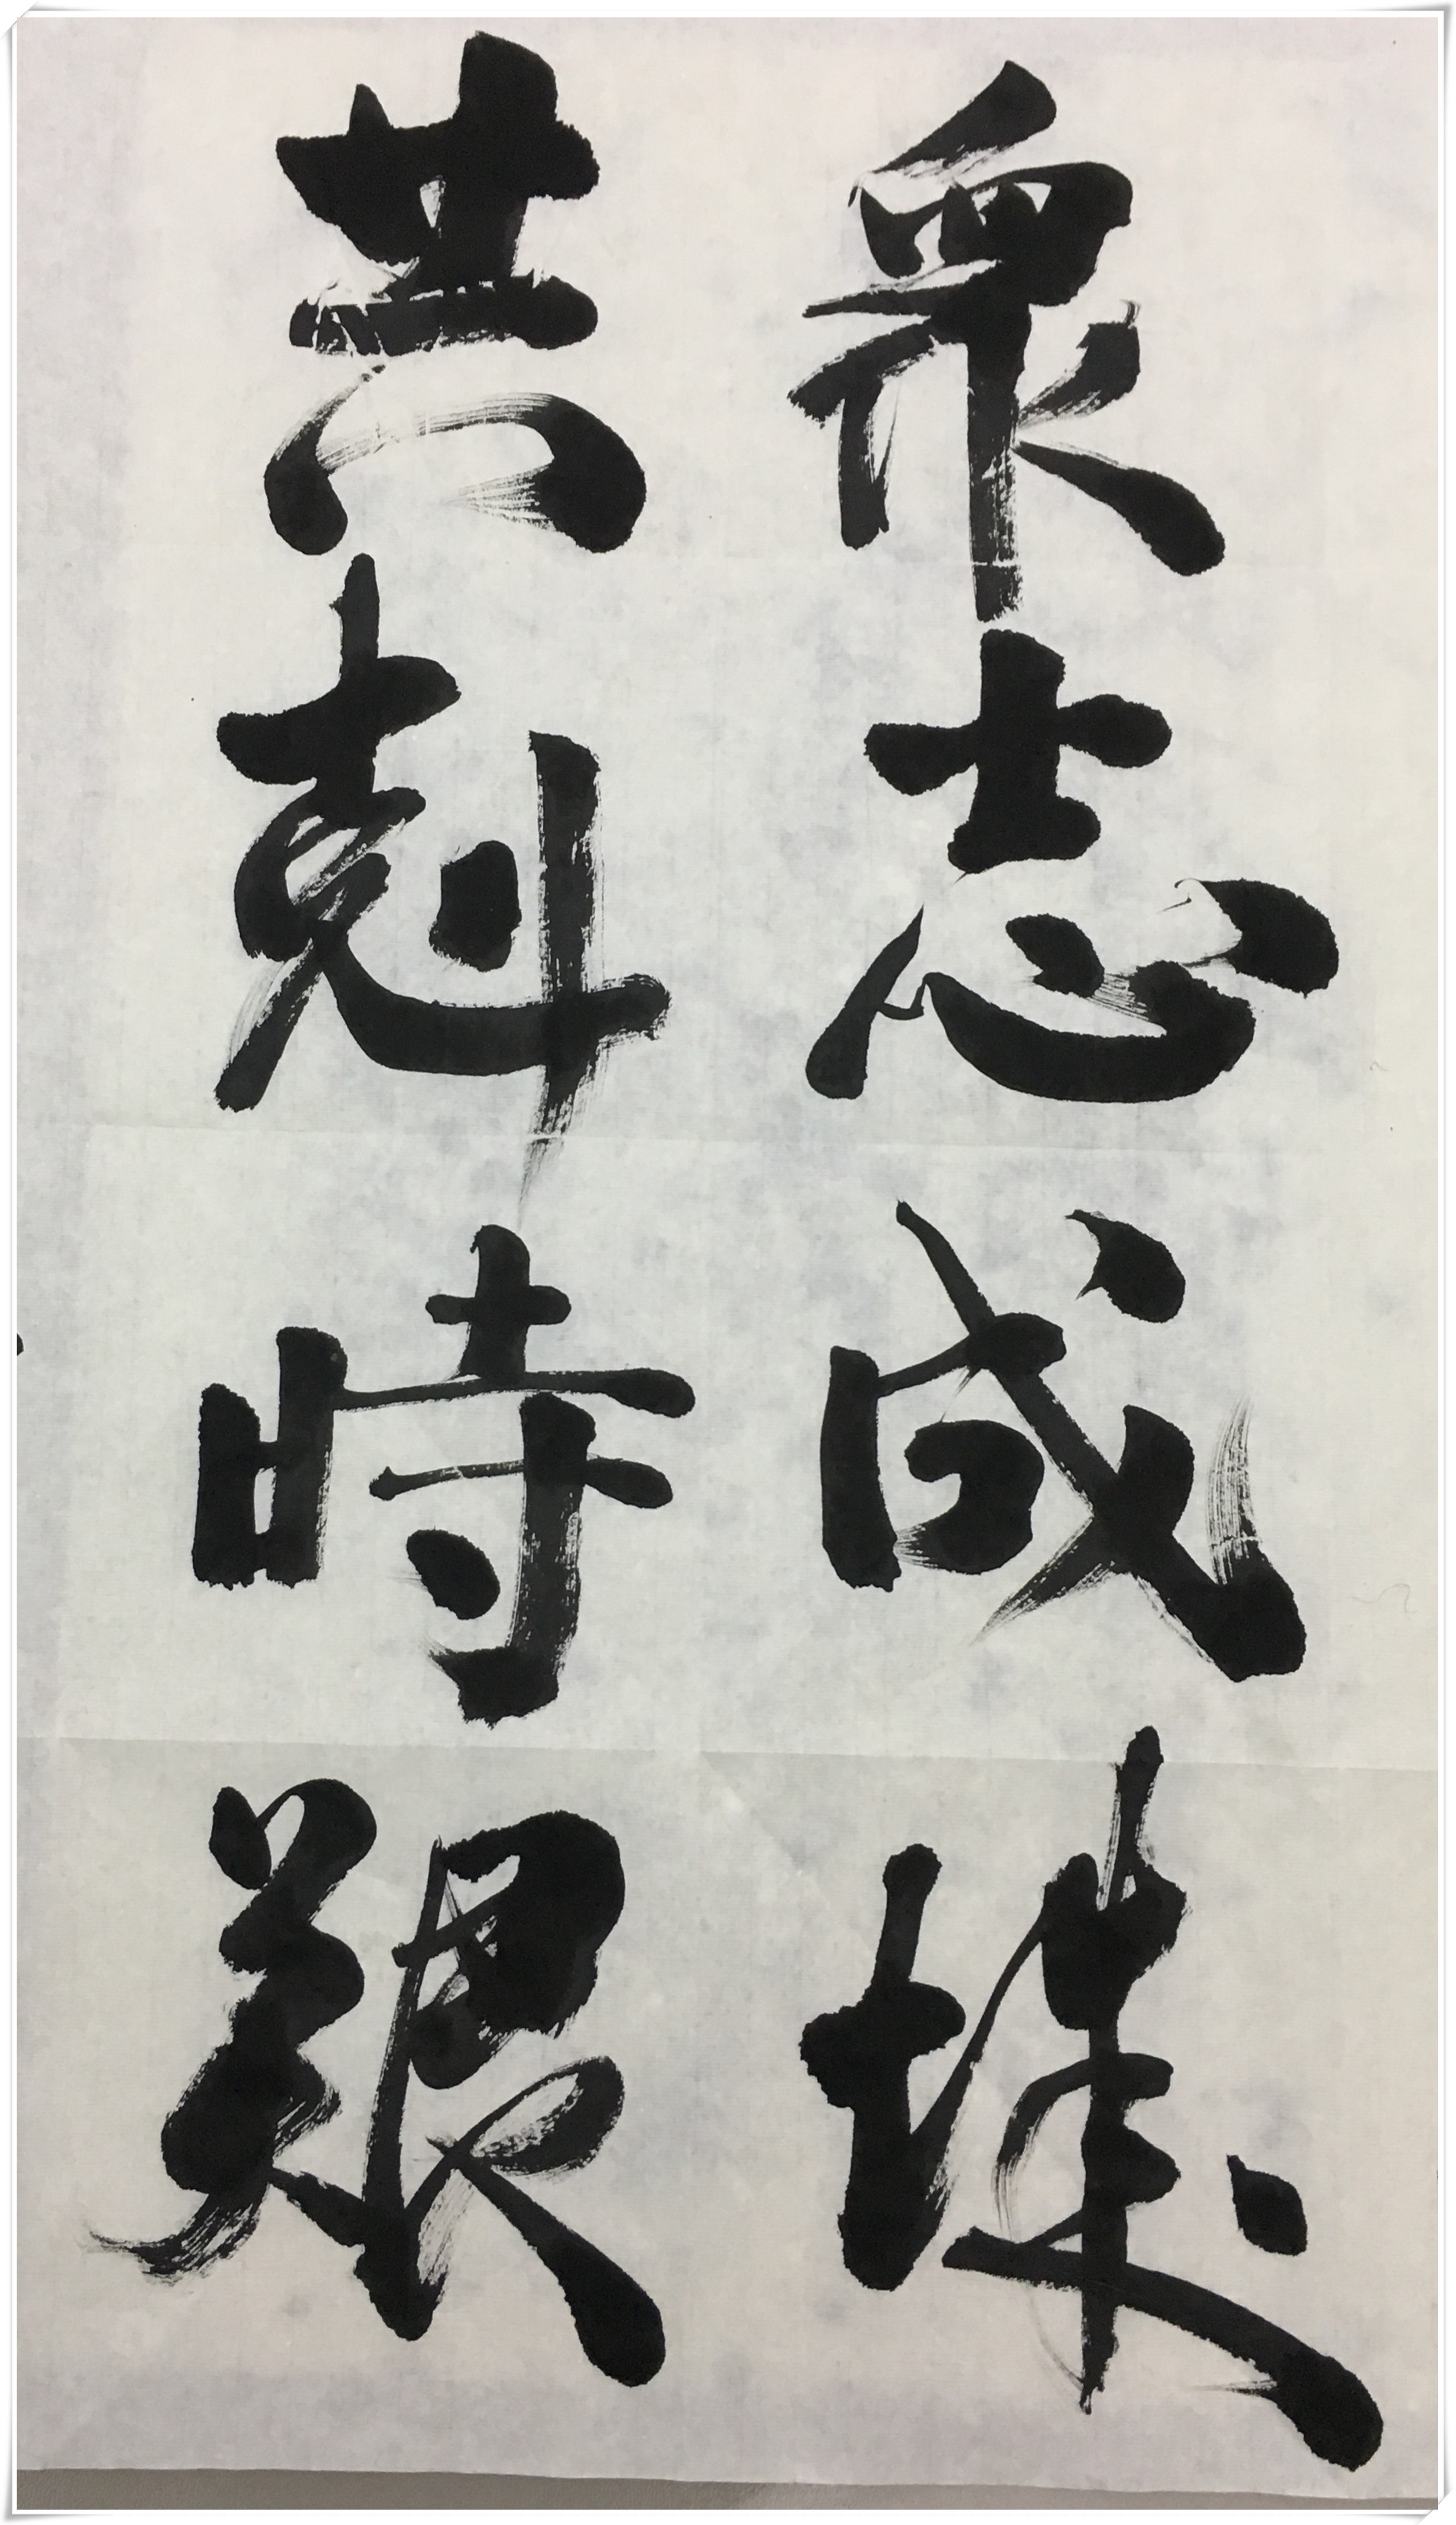 衆志成城
共剋時艱